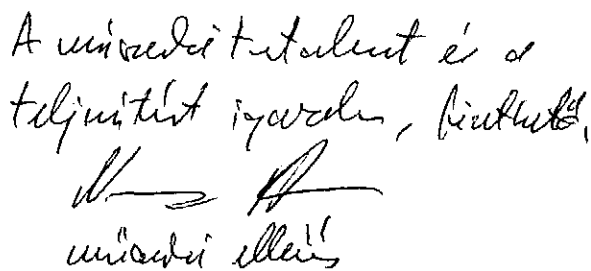 A műszaki tartalmat és a
teljesítést igazolom, fizethető.
műszaki ellenőr